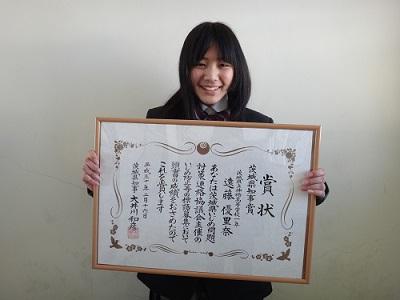 賞状
茨城県知事賞
遠藤優里奈
あなたは茨城県いじめ問題
対策連絡協議会主催の
いじめ防止等の標語募集において
頭書の成績をおさめたので
これを賞します
平成三十一年二月十六日
茨城県知事 大井川和彦